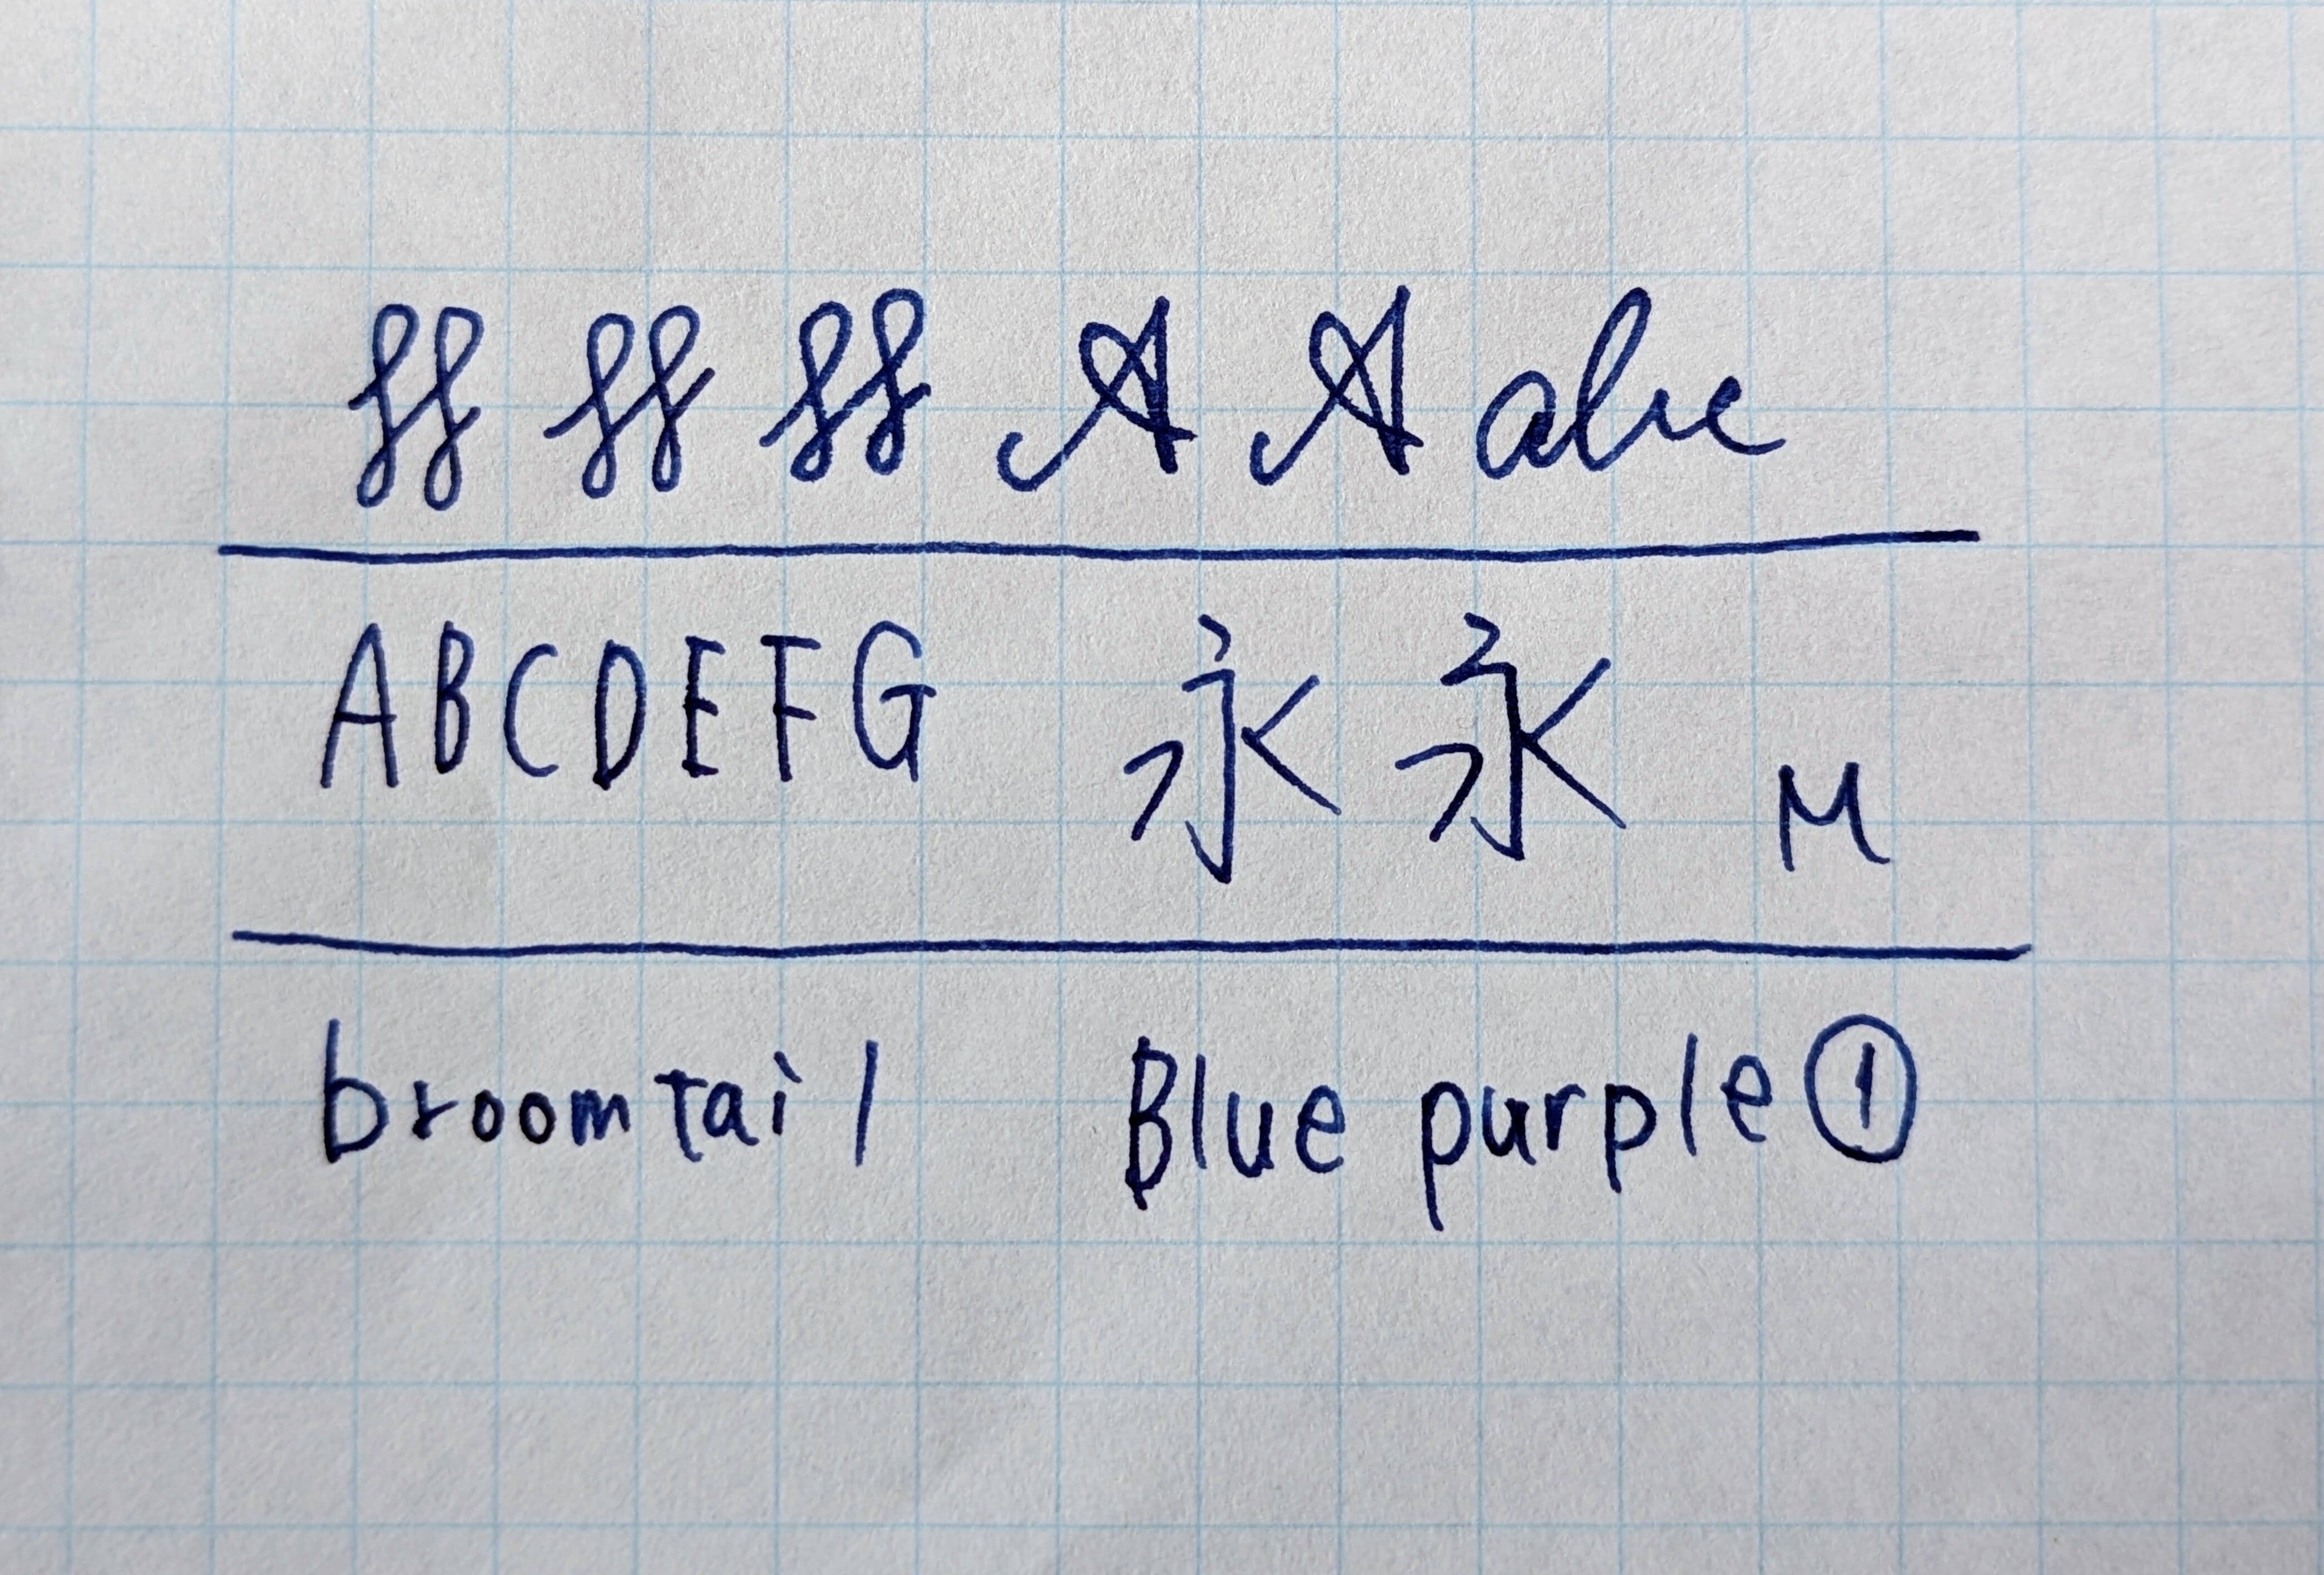 ff ff ff A A abc
ABCDEFG 永 永 M
broomtail Blue purple ①